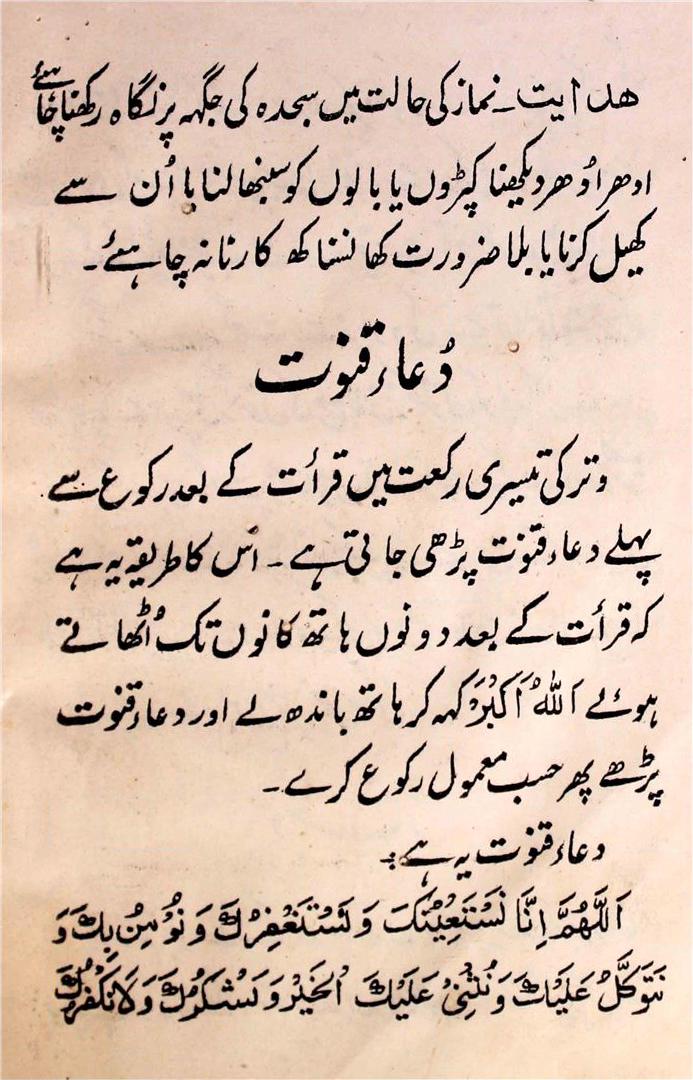 ھدایت۔ نماز کی حالت میں سجدہ کی جگہہ پر نگاہ رکھنا چاہئے
اِدھر اُدھر دیکھنا کپڑوں یا بالوں کو سنبھالنا یا اُن سے
کھیل کرنا یا بلا ضرورت کھانسنا کھکارنا نہ چاہئے۔
دُعاء قنوت
وتر کی تیسری رکعت میں قرأت کے بعد رکوع سے
پہلے دعاء قنوت پڑھی جاتی ہے۔ اس کا طریقہ یہ ہے
کہ قرأت کے بعد دونوں ہاتھ کانوں تک اُٹھاتے
ہوئے اَللّٰہُ اَکْبَرْ کہہ کر ہاتھ باندھ لے اور دعاء قنوت
پڑھے پھر حسب معمول رکوع کرے۔
دعاء قنوت یہ ہے:۔
اَللّٰهُمَّ اِنَّا نَسْتَعِيْنُكَ وَنَسْتَغْفِرُكَ وَنُؤْمِنُ بِكَ وَ
نَتَوَكَّلُ عَلَيْكَ وَنُثْنِيْ عَلَيْكَ الْخَيْرَ وَنَشْكُرُكَ وَلَا نَكْفُرُكَ